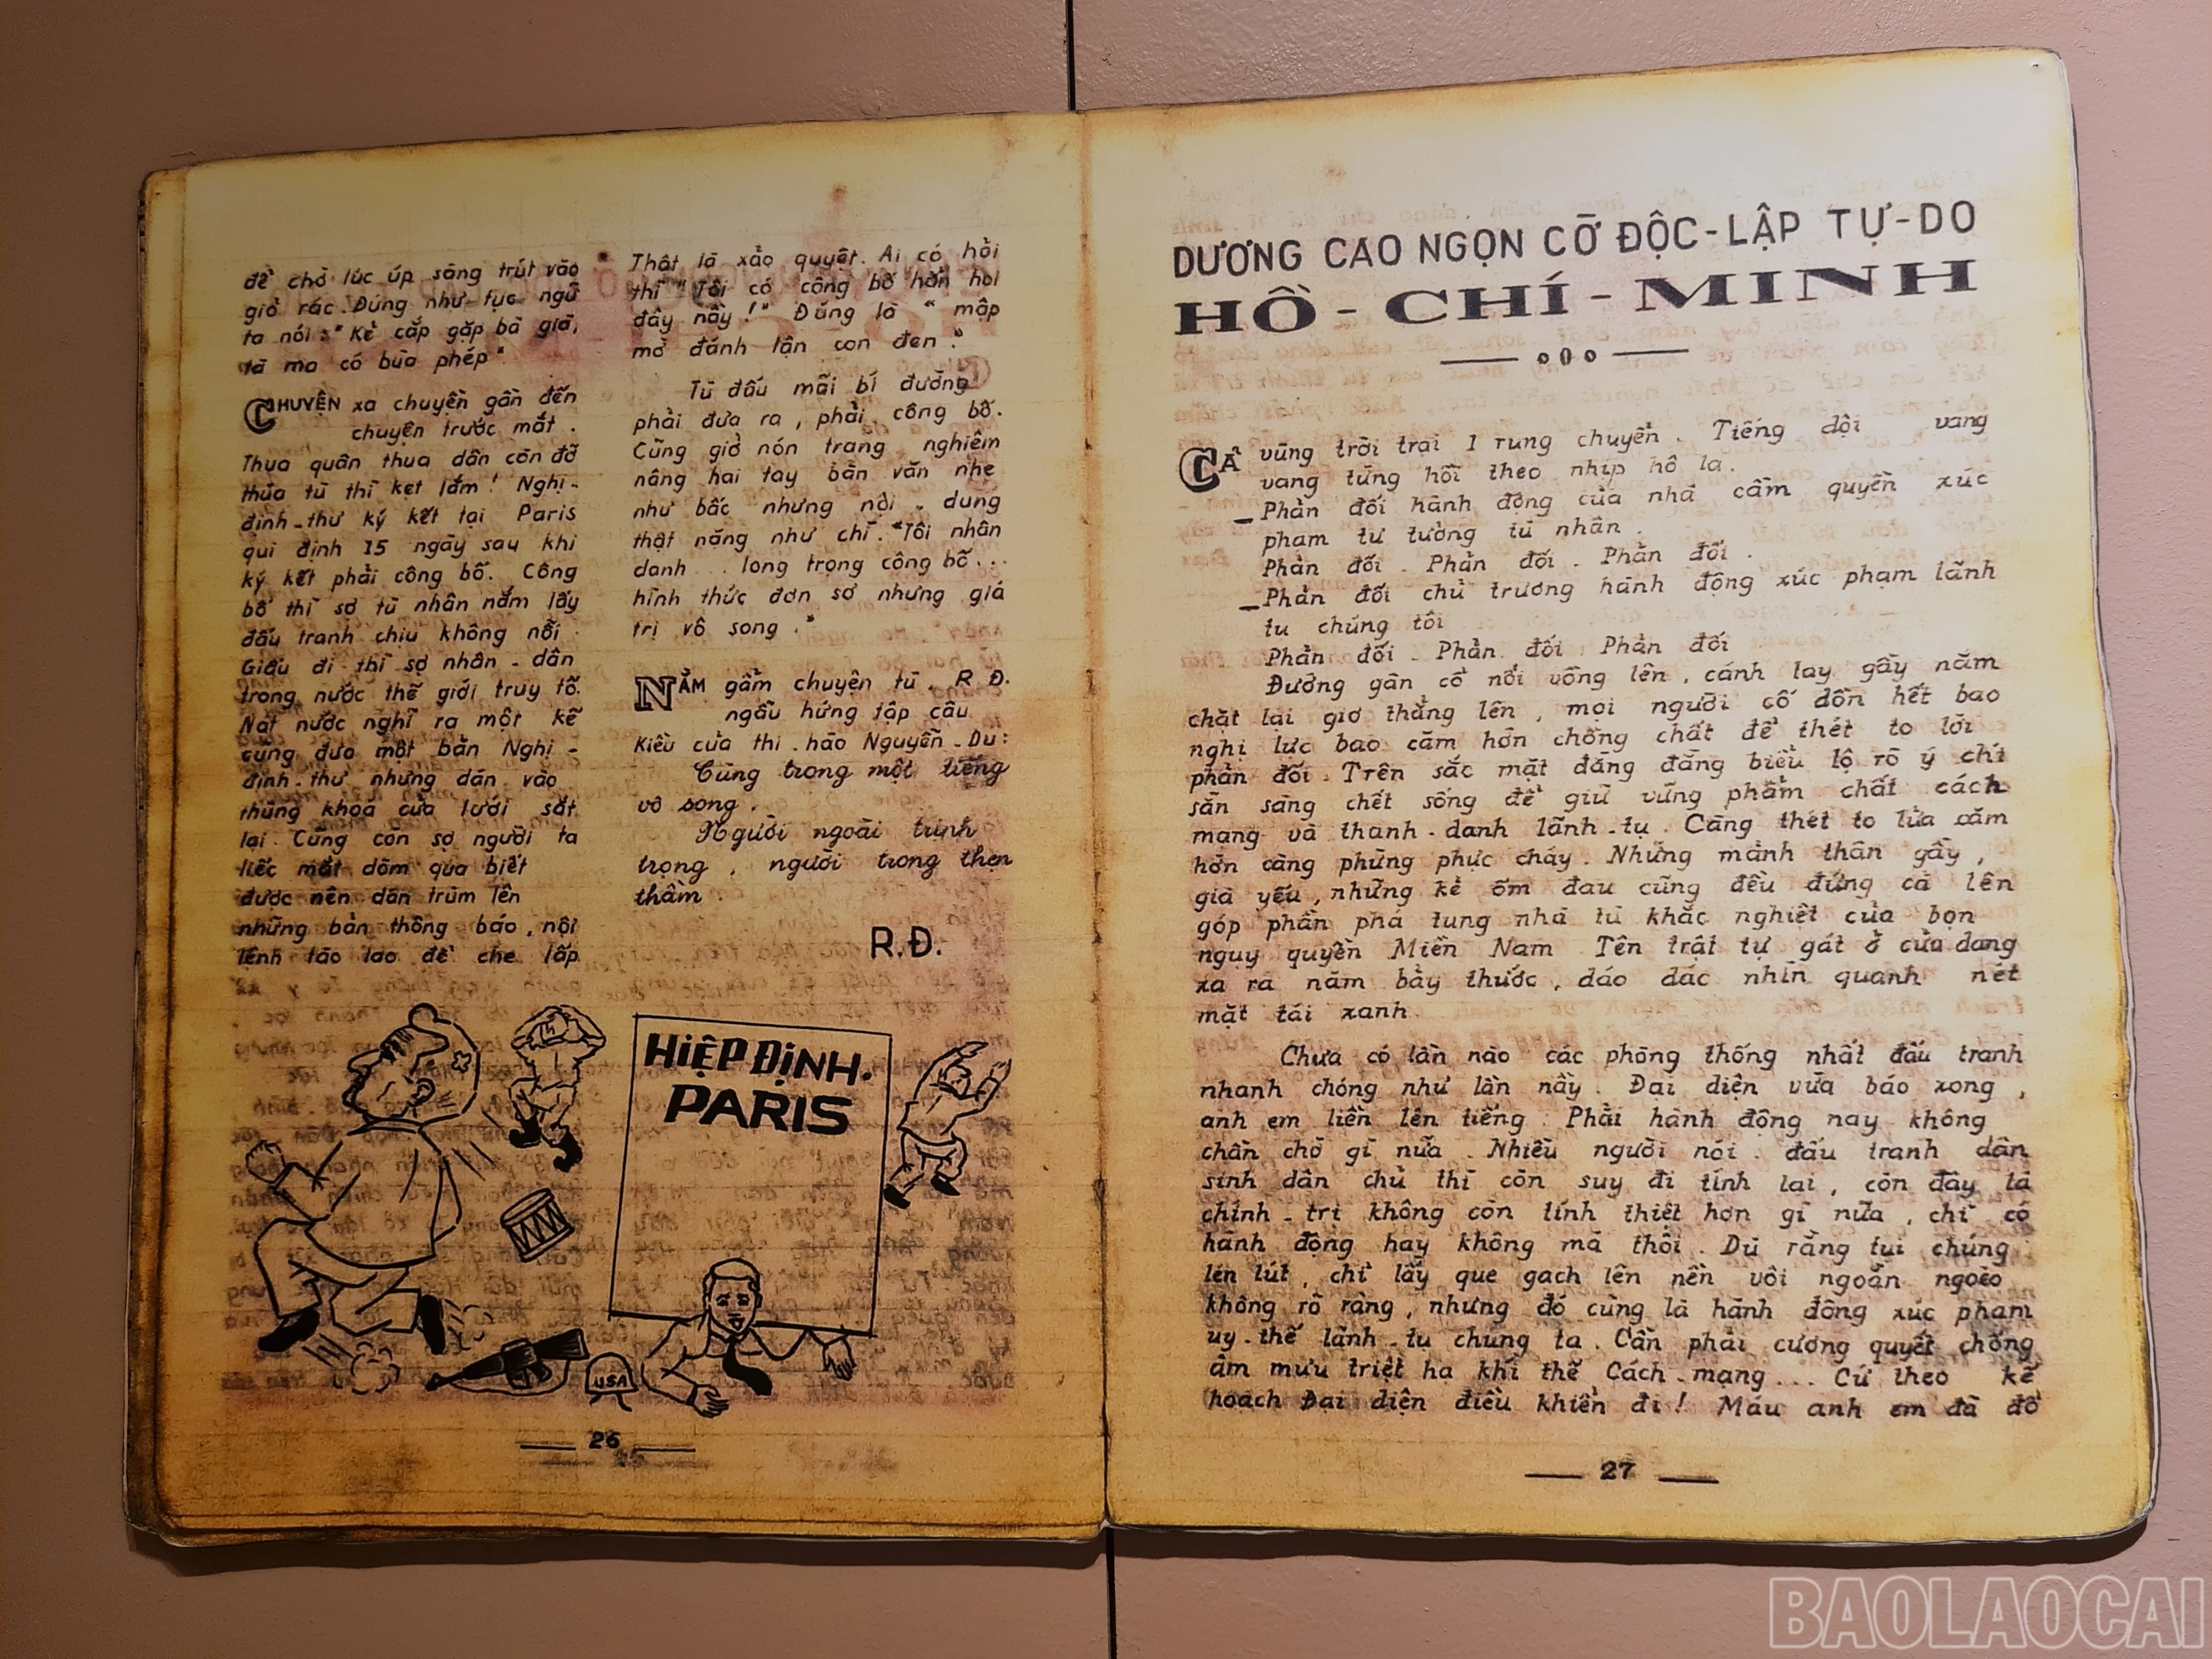 để chờ lúc úp sàng trút vào
giỏ rác. Đúng như tục ngữ
ta nói: "Kẻ cắp gặp bà già,
tà ma có bùa phép"
CHUYỆN xa chuyện gần đến
chuyện trước mắt.
Thua quân thua dân còn đỡ
thua tù thì kẹt lắm! Nghị-
định-thư ký kết tại Paris
qui định 15 ngày sau khi
ký kết phải công bố. Công
bố thì sợ tù nhân nắm lấy
đấu tranh chịu không nổi.
Giấu đi thì sợ nhân-dân
trong nước thế giới truy tố.
Nát nước nghĩ ra một kế
cũng đưa một bản Nghị-
định-thư nhưng dán vào
thùng khoá cửa lưới sắt
lại. Cũng còn sợ người ta
liếc mắt dòm qua biết
được nên dán trùm lên
những bản thông báo, nội
lệnh tào lao để che lấp
Thật là xảo quyệt. Ai có hỏi
thì "Tôi có công bố hẳn hoi
đây nầy!" Đúng là "mập
mờ đánh lận con đen".
Tù đấu mãi bí đường
phải đưa ra, phải công bố.
Cũng giở nón trang nghiêm
nâng hai tay bản văn nhẹ
như bấc nhưng nội-dung
thật nặng như chì. "Tôi nhân
danh... long trọng công bố...
hình thức đơn sơ nhưng giá
trị vô song."
NẰM gẫm chuyện tù, R.Đ.
ngẫu hứng tập câu
Kiều của thi-hào Nguyễn-Du:
Cùng trong một tiếng
vô song,
Người ngoài trịnh
trọng, người trong thẹn
thầm.
R.Đ.
HIỆP ĐỊNH.
PARIS
USA
26
DƯƠNG CAO NGỌN CỜ ĐỘC-LẬP TỰ-DO
HỒ-CHÍ-MINH
CẢ vùng trời trại 1 rung chuyển. Tiếng dội vang
vang từng hồi theo nhịp hô la.
– Phản đối hành động của nhà cầm quyền xúc
phạm tư tưởng tù nhân.
Phản đối. Phản đối. Phản đối.
– Phản đối chủ trương hành động xúc phạm lãnh
tụ chúng tôi
Phản đối. Phản đối Phản đối
Đường gân cổ nổi vồng lên, cánh tay gầy nắm
chặt lại giơ thẳng lên, mọi người cố dồn hết bao
nghị lực bao căm hờn chồng chất để thét to lời
phản đối. Trên sắc mặt đăng đằng biểu lộ rõ ý chí
sẵn sàng chết sống để giữ vững phẩm chất cách
mạng và thanh-danh lãnh-tụ. Càng thét to lửa căm
hờn càng phừng phực cháy. Những mảnh thân gầy,
già yếu, những kẻ ốm đau cũng đều đứng cả lên
góp phần phá tung nhà tù khắc nghiệt của bọn
ngụy quyền Miền Nam. Tên trật tự gát ở cửa dang
xa ra năm bảy thước, dáo dác nhìn quanh nét
mặt tái xanh.
Chưa có lần nào các phòng thống nhất đấu tranh
nhanh chóng như lần nầy. Đại diện vừa báo xong,
anh em liền lên tiếng. Phải hành động ngay không
chần chờ gì nữa. Nhiều người nói: đấu tranh dân
sinh dân chủ thì còn suy đi tính lại, còn đây là
chính-trị không còn tính thiệt hơn gì nữa, chỉ có
hành động hay không mà thôi. Dù rằng tụi chúng
lén lút, chỉ lấy que gạch lên nền vôi ngoằn ngoèo
không rõ ràng, nhưng đó cũng là hành động xúc phạm
uy-thế lãnh-tụ chúng ta. Cần phải cương quyết chống
âm mưu triệt hạ khí thế Cách-mạng... Cứ theo kế
hoạch Đại diện điều khiển đi! Máu anh em đã đổ
27
BAOLAOCAI